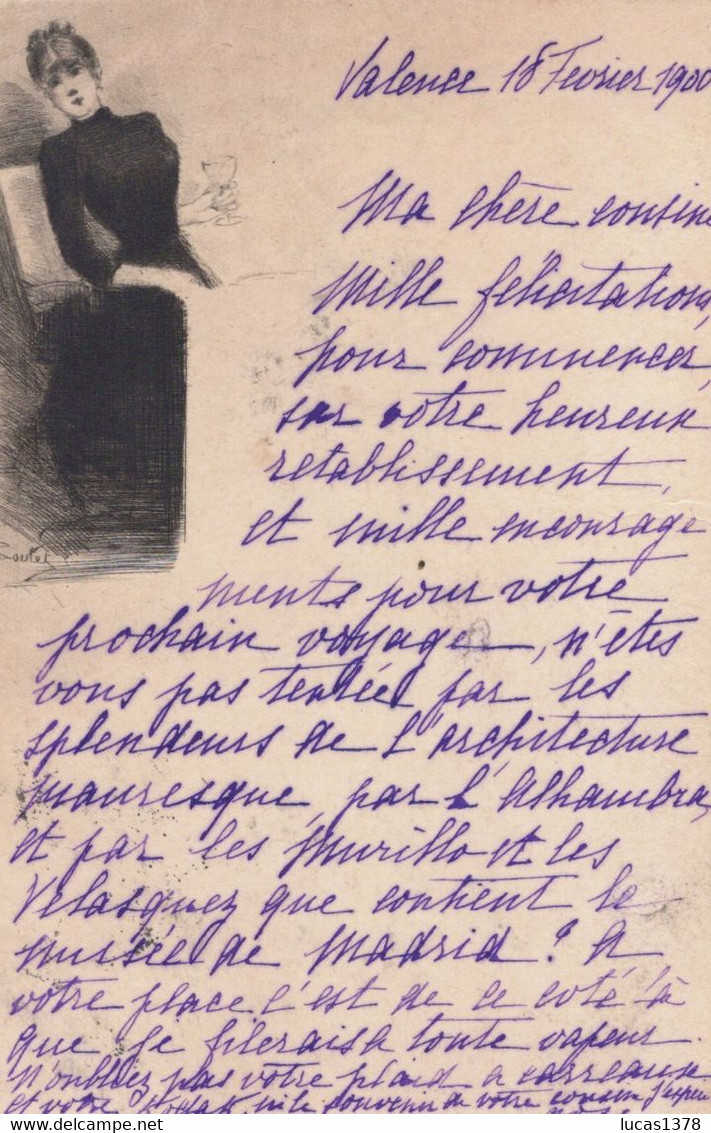 Valence 18 Fevrier 1900
Ma chère cousine
Mille félicitations,
pour commencer,
sur votre heureux
retablissement,
et mille encourage
ments pour votre
prochain voyage, n'êtes
vous pas tentée par les
splendeurs de l'architecture
mauresque, par l'Alhambra,
et par les Murillo et les
Velasquez que contient le
musée de Madrid? A
votre place c'est de ce coté là
que je filerais à toute vapeur.
N'oubliez pas votre plaid a carreaux
et votre Kodak, souvenir de votre cousin
lucas1378